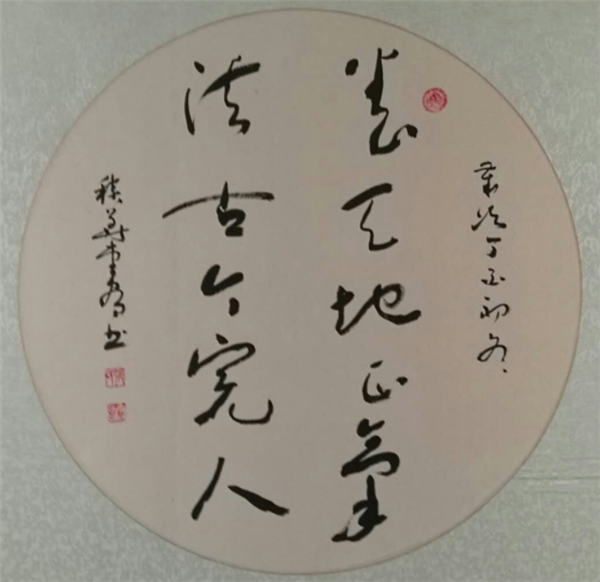 歲次丁酉初冬
養天地正氣
法古今完人
書